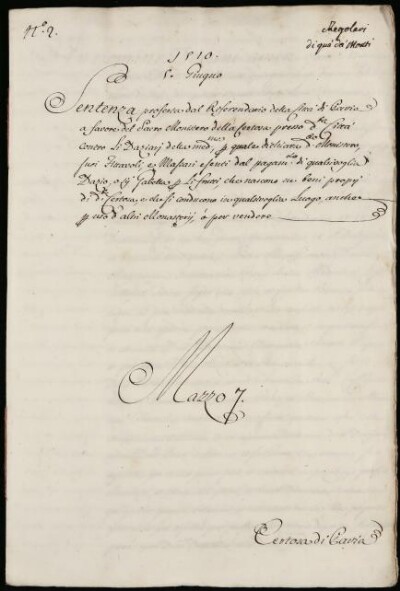 N.º 2.
Regolari
di quà da' Monti
1510.
5. Giugno
Sentenza proferta dal Referendario della Città di Pavia
a favore del Sacro Monistero della Certosa presso d.ta Città
contro Li Daziarj della med.ma, p quale dichiara d.to Monistero,
suoi Fittavoli, e Massari esenti dal pagam.to di qualsivoglia
Dazio, o Gabella p Li frutti, che nascono su beni proprj
di d.ta Certosa, e che si conducono in qualsivoglia Luogo, anche
p uso d'altri Monasterj, ò per vendere
Mazzo 7.
Certosa di Pavia